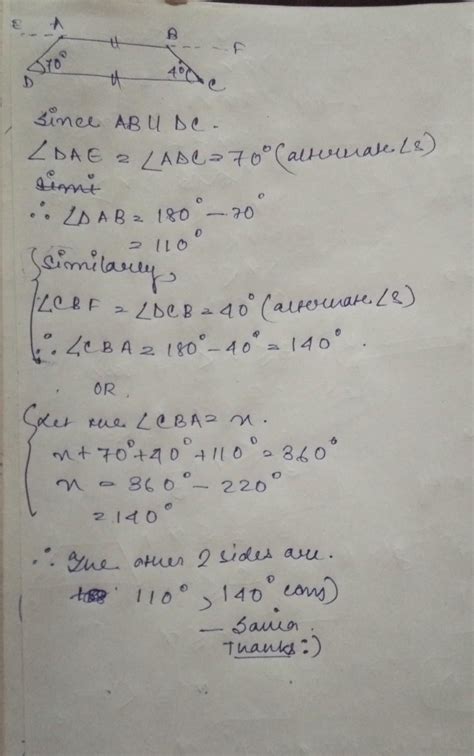 E A B F
70° 40°
D C
Since AB || DC.
∠DAE = ∠ADC = 70° (alternate ∠s)
Simi
∴ ∠DAB = 180° - 70°
= 110°
Similarly,
∠CBF = ∠DCB = 40° (alternate ∠s)
∴ ∠CBA = 180° - 40° = 140°.
OR
Let the ∠CBA = x.
x + 70° + 40° + 110° = 360°
x = 360° - 220°
= 140°
∴ The other 2 sides are.
110°, 140° (ans)
— Sania.
Thanks :)